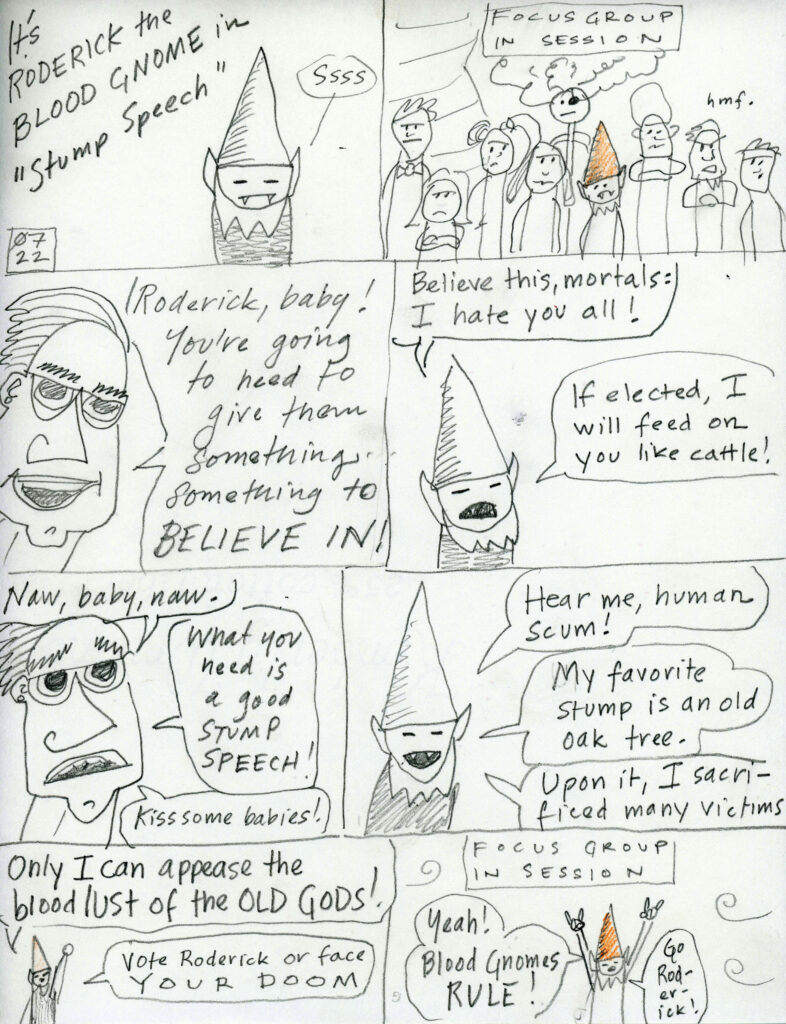 It's
RODERICK the
BLOOD GNOME in
"Stump Speech"
Ssss
07
22
FOCUS GROUP
IN SESSION
hmf.
Roderick, baby!
You're going
to need to
give them
something.
something to
BELIEVE IN!
Believe this, mortals:
I hate you all!
If elected, I
will feed on
you like cattle!
Naw, baby, naw.
What you
need is
a good
STUMP
SPEECH!
Kiss some babies!
Hear me, human
scum!
My favorite
stump is an old
oak tree.
Upon it, I sacri-
ficed many victims
Only I can appease the
blood lust of the OLD GODS!
Vote Roderick or face
YOUR DOOM
FOCUS GROUP
IN SESSION
Yeah!
Blood Gnomes
RULE!
Go
Rod-
er-
ick!